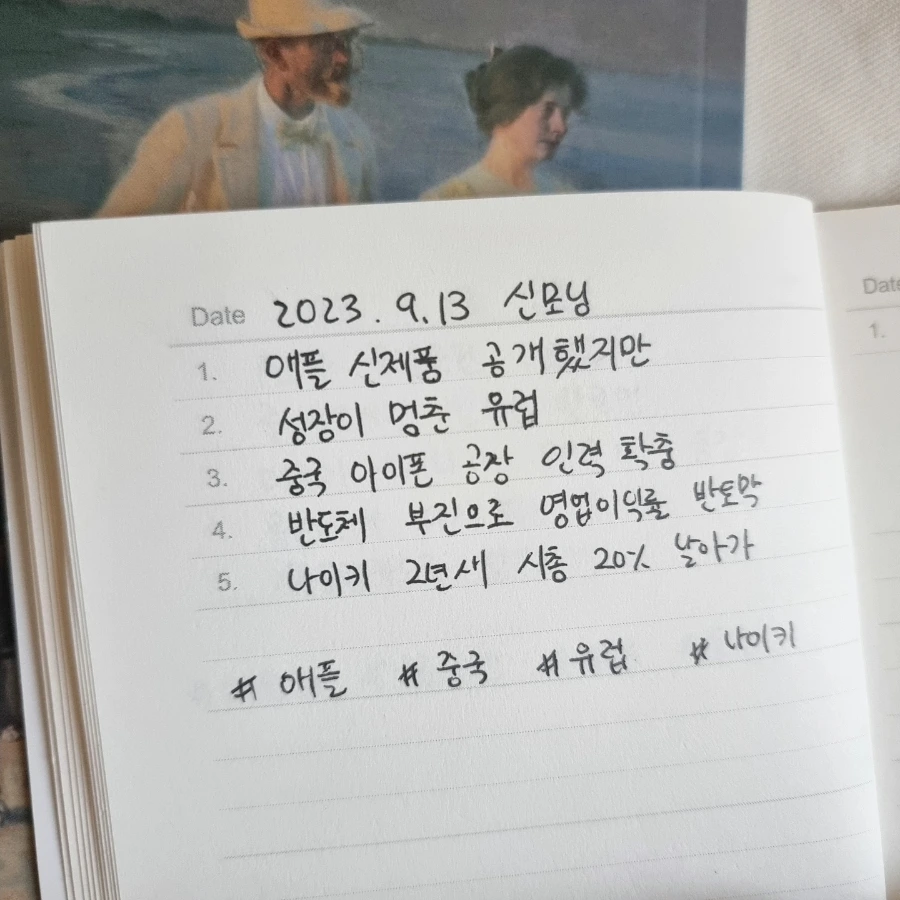 Date 2023. 9. 13 신모닝
1. 애플 신제품 공개했지만
2. 성장이 멈춘 유럽
3. 중국 아이폰 공장 인력 확충
4. 반도체 부진으로 영업이익률 반토막
5. 나이키 2년새 시총 20% 날아가
# 애플 # 중국 # 유럽 # 나이키
Date
1.